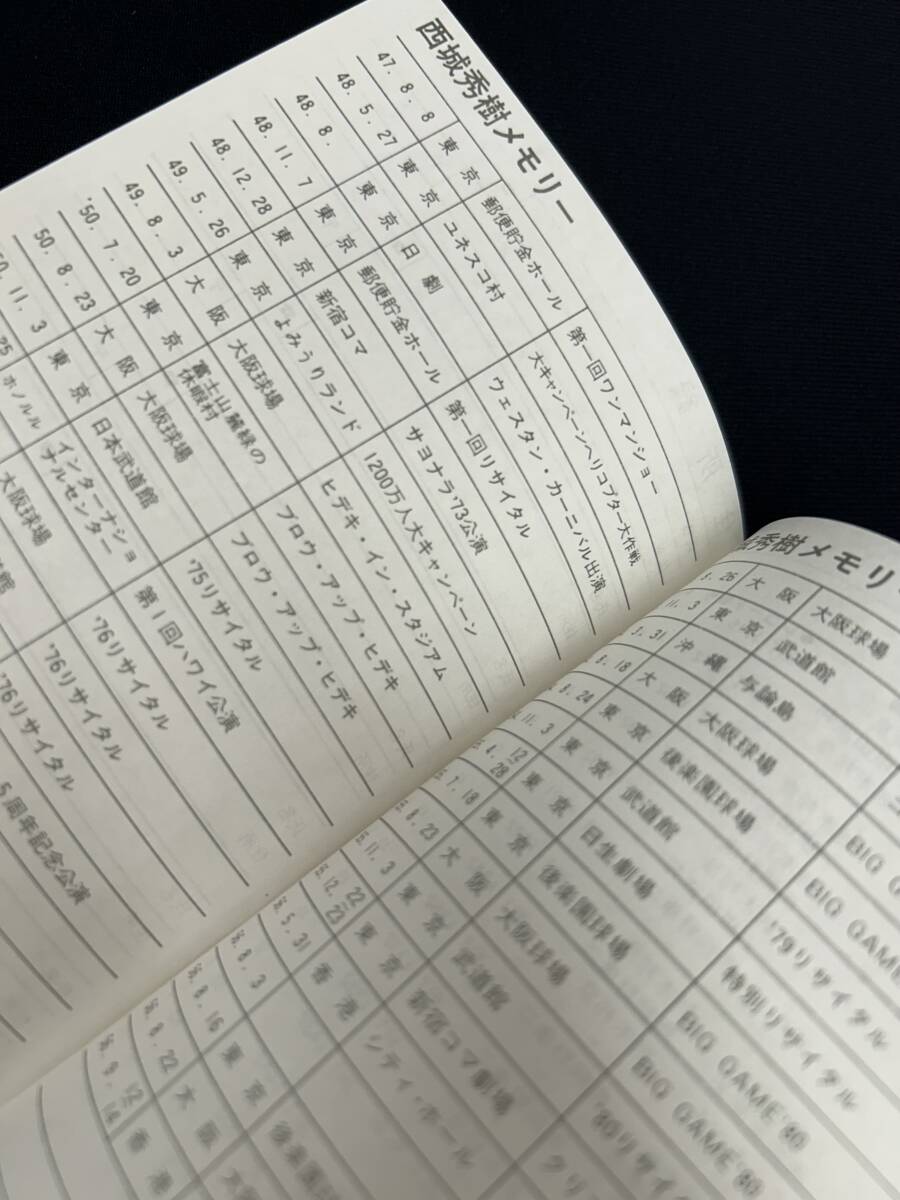 西城秀樹メモリー
47. 8. 8 東京 郵便貯金ホール 第一回ワンマンショー
48. 5. 27 東京 ユネスコ村 大キャンペーンヘリコプター大作戦
48. 8. 東京 日劇 ウェスタン・カーニバル出演
48. 11. 7 東京 郵便貯金ホール 第一回リサイタル
48. 12. 28 東京 新宿コマ サヨナラ'73公演
49. 5. 26 東京 よみうりランド 1200万人大キャンペーン
49. 8. 3 大阪 大阪球場 ヒデキ・イン・スタジアム
'50. 7. 20 東京 富士山麓緑の休暇村 ブロウ・アップ・ヒデキ
50. 8. 23 大阪 大阪球場 ブロウ・アップ・ヒデキ
50. 11. 3 東京 日本武道館 '75リサイタル
25 ホノルル インターナショナルセンター 第1回ハワイ公演
大阪球場 '76リサイタル
館 '76リサイタル
'76リサイタル
5周年記念公演
秀樹メモリ
3. 26 大阪 大阪球場
11. 3 東京 武道館
3. 31 沖縄 与論島
18 大阪 大阪球場 BIG GAME
24 東京 後楽園球場 BIG GAME
11. 3 東京 武道館 '79リサイタル
28 東京 日生劇場 特別リサイタル
7. 18 東京 後楽園球場 BIG GAME'80
8. 23 大阪 大阪球場 BIG GAME'80
11. 3 東京 武道館 '80リサイ
12. 22 23 東京 新宿コマ劇場 ク
5. 31 香港 シティ・ホール
8. 3
8. 16 東京 後楽園
8. 22 大阪 大
9. 12 香港